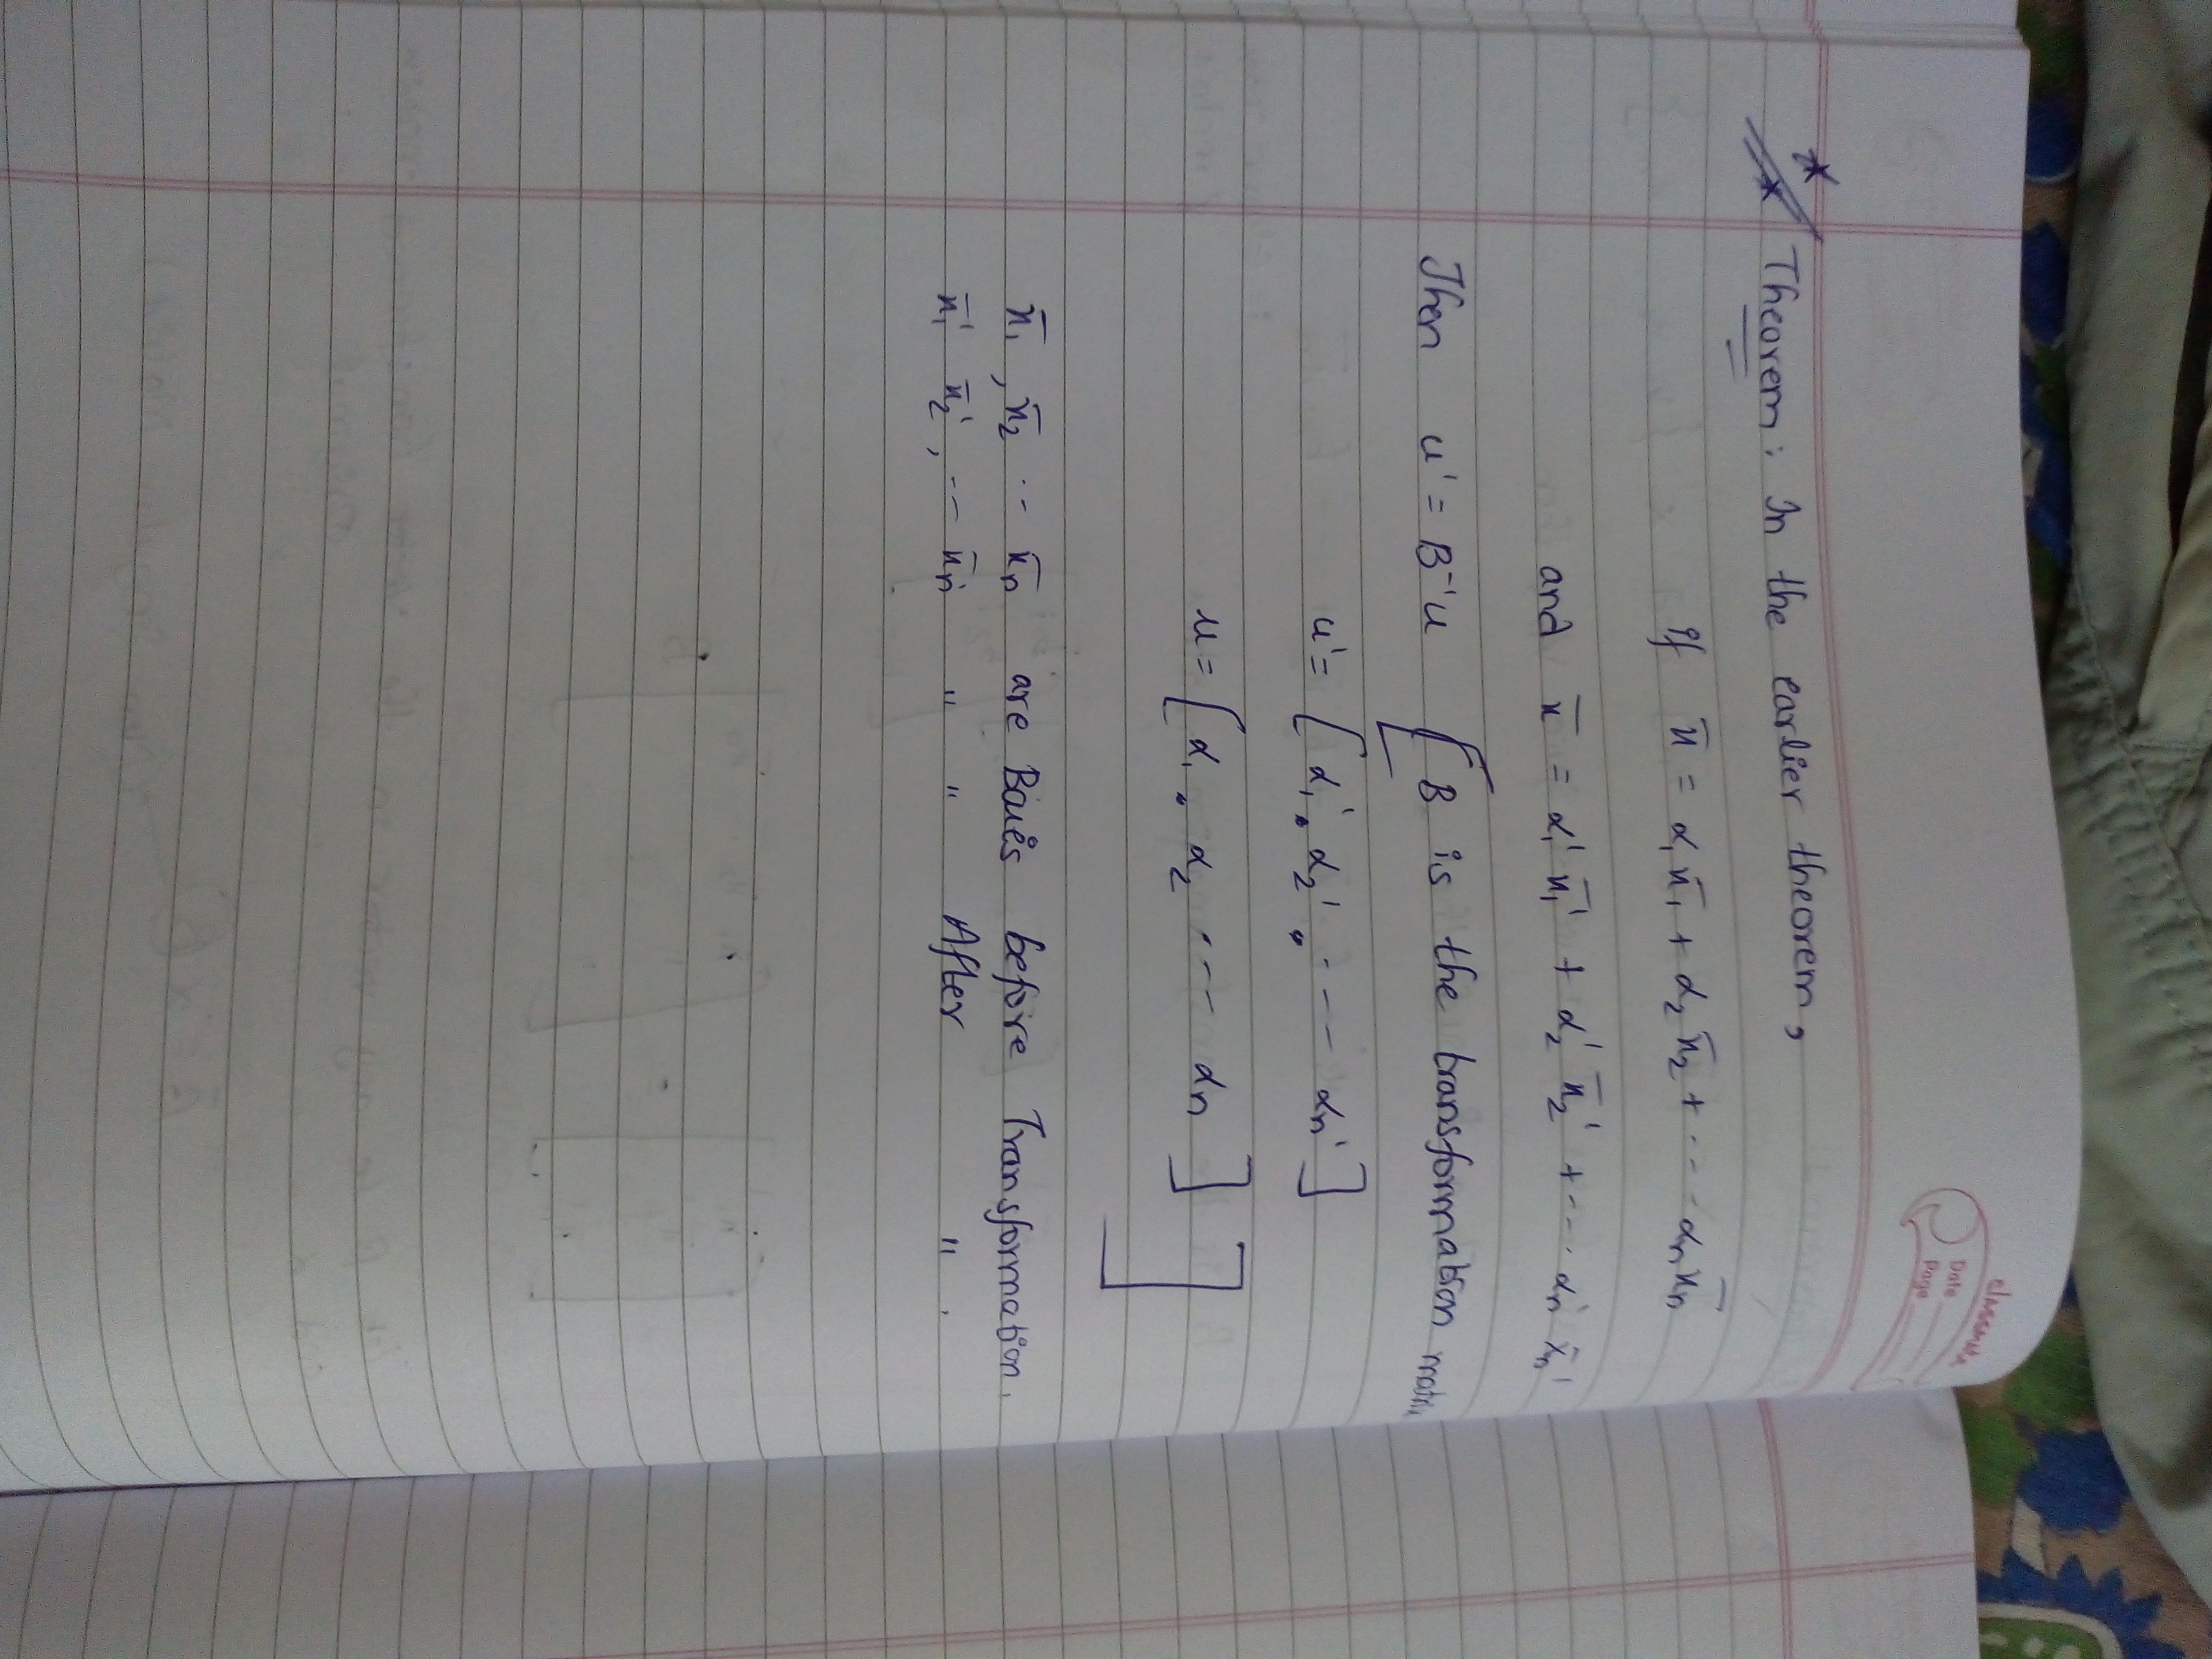 classmate
Date
Page
Theorem: In the earlier theorem,
If x̄ = α₁x̄₁ + α₂x̄₂ + ... αₙx̄ₙ
and x̄ = α₁'x̄₁' + α₂'x̄₂' + ... αₙ'x̄ₙ'
Then u' = B⁻¹u [B is the transformation
u' = [α₁', α₂', --- αₙ']
u = [α₁, α₂ --- αₙ]]
x̄₁, x̄₂ .. x̄ₙ are Basis before Transformation.
x̄₁' x̄₂', -- x̄ₙ' " " After " .